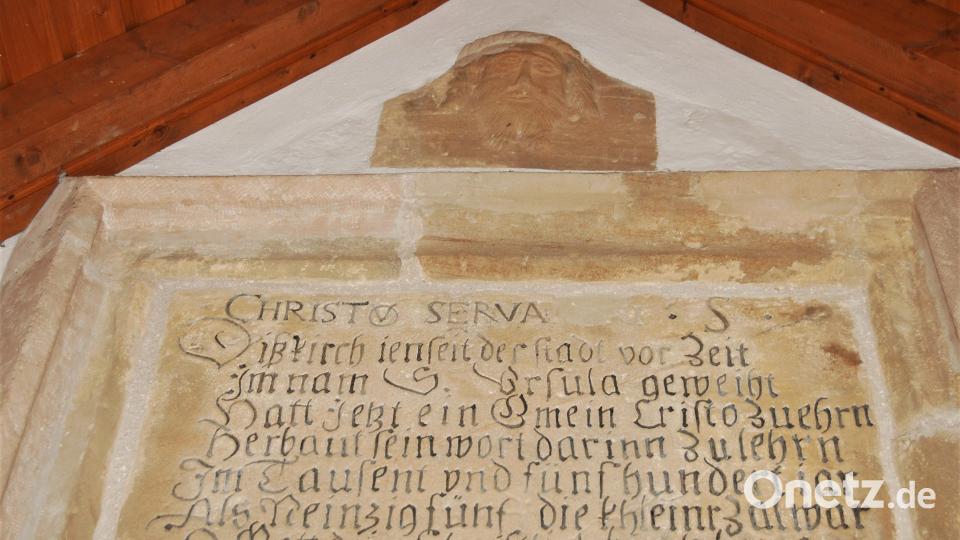 CHRISTO SERVA . S .
Diß kirch ienseit der stadt vor Zeit
Im nam S. Vrsula geweiht
Hatt jetzt ein Gmein Cristo zu ehrn
Herbaut sein wort darinn zu lehrn
Im Tausent vnd fünf hundert iar
Als Neinzig fünf die khlein Zal war
Onetz.de